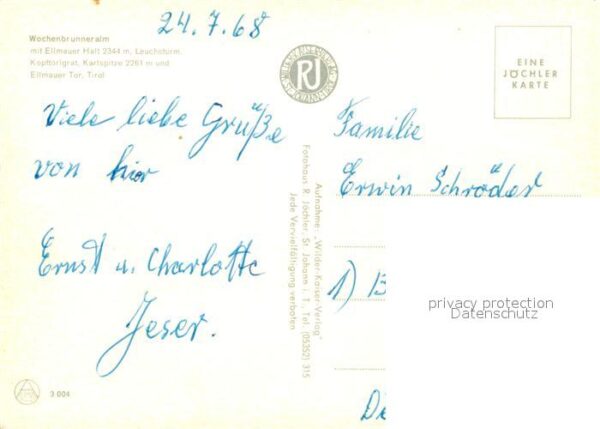 24.7.68
Wochenbrunneralm
mit Ellmauer Halt 2344 m, Leuchsturm,
Kopftörlgrat, Karlspitze 2261 m und
Ellmauer Tor, Tirol
RJ
EINE
JÖCHLER
KARTE
Viele liebe Grüße
von hier
Ernst u. Charlotte
Jeser.
Familie
Erwin Schröder
1) B
Di
Aufnahme: „Wilder-Kaiser-Verlag"
Fotohaus R. Jöchler, St. Johann i. T., Tel. (05352) 315
Jede Vervielfältigung verboten
privacy protection
Datenschutz
3 004